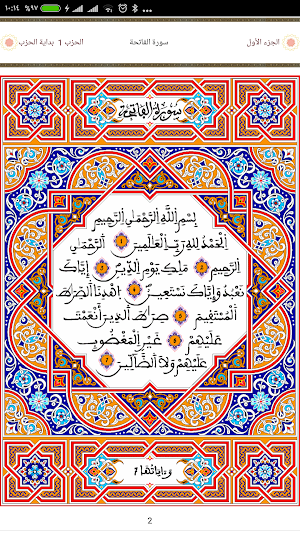 ١٠:١٤ %٩٧
الجزء الأول سورة الفاتحة الحزب 1 بداية الحزب
سورة الفاتحة
بِسْمِ اللَّهِ الرَّحْمَٰنِ الرَّحِيمِ
الْحَمْدُ لِلَّهِ رَبِّ الْعَالَمِينَ 1 الرَّحْمَٰنِ
الرَّحِيمِ 2 مَلِكِ يَوْمِ الدِّينِ 3 إِيَّاكَ
نَعْبُدُ وَإِيَّاكَ نَسْتَعِينُ 4 اهْدِنَا الصِّرَاطَ
الْمُسْتَقِيمَ 5 صِرَاطَ الَّذِينَ أَنْعَمْتَ
عَلَيْهِمْ 6 غَيْرِ الْمَغْضُوبِ
عَلَيْهِمْ وَلَا الضَّالِّينَ 7
وءاياتها 7
2